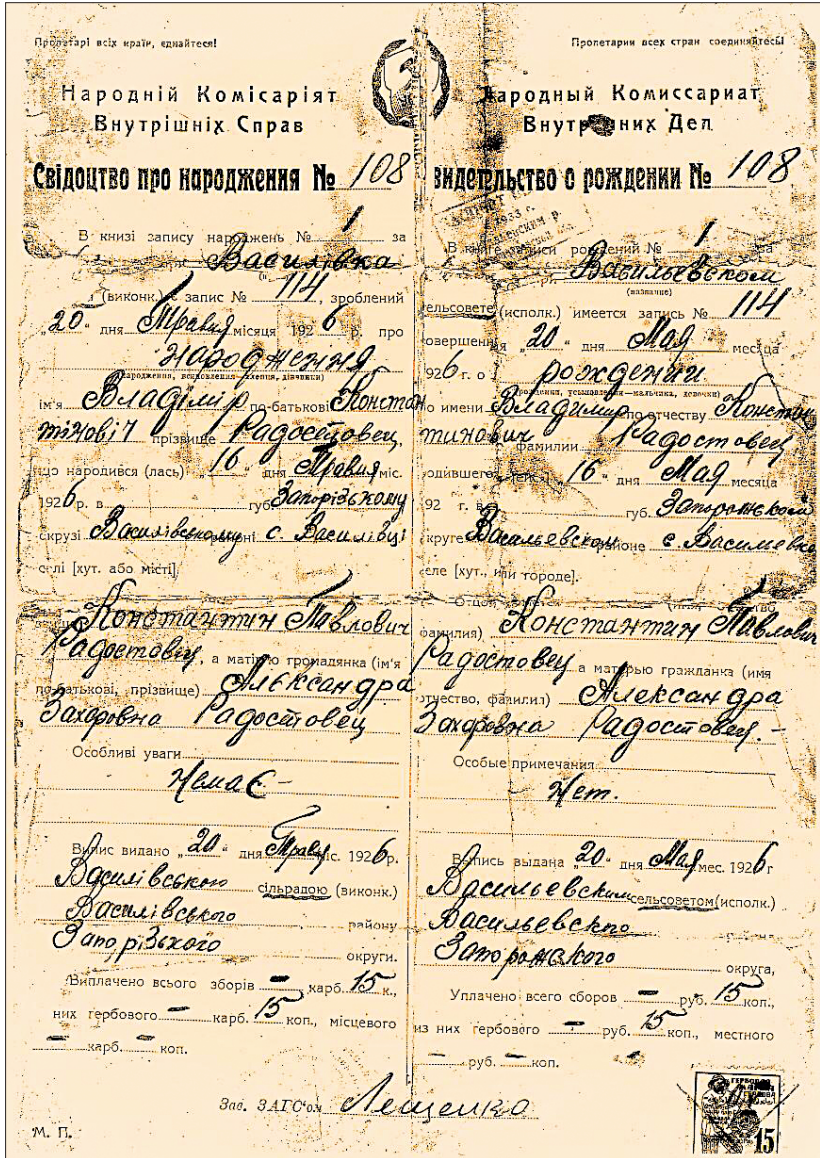 Пролетарі всіх країн, єднайтеся!
Народній Комісаріят
Внутрішніх Справ
Свідоцтво про народження № 108
В книзі запису народжень № 1 за
Василівка
(виконк.) є запис № 114, зроблений
„20“ дня Травня місяця 1926 р. про
народження
ім'я Владімір по-батькові Констан
тінович прізвище Радостовец,
що народився (лась) „16“ дня Травня міс.
1926 р. в губ. Запорізькому
скрузі Василівському районі с. Василівці
селі [хут. або місті]
Константин Павлович
Радостовец, а матірю громадянка (ім'я
по-батькові, прізвище) Александра
Захаровна Радостовец
Особливі уваги
Немає -
Випис видано „20“ дня Травня міс. 1926 р.
Василівською сільрадою (виконк.)
Василівського району
Запорізького округи.
Виплачено всього зборів - карб. 15 к.,
них гербового - карб. 15 коп., місцевого
- карб. - коп.
Пролетарии всех стран соединяйтесь!
Народный Комиссариат
Внутренних Дел
видетельство о рождении № 108
В книге записи рождений № 1 за
Васильевском
(название)
сельсовете (исполк.) имеется запись № 114
совершенная „20“ дня Мая месяца
1926 г. о рождении
по имени Владимир по отчеству Констан
тинович фамилии Радостовец
родившегося 16“ дня Мая месяца
192 г. в губ. Запорожской
округе Васильевском районе с. Василиевке
селе [хут., или городе].
фамилия) Константин Павлович
Радостовец а матерью гражданка (имя
отчество, фамилия) Александра
Захаровна Радостовец. -
Особые примечания
Нет.
Выпись выдана „20“ дня Мая мес. 1926 г
Васильевским сельсоветом (исполк.)
Васильевского района
Запорожского округа,
Уплачено всего сборов - руб. 15 коп.,
из них гербового - руб. 15 коп., местного
- руб. - коп.
Зав. ЗАГС'ом Лещенко
М. П.
15